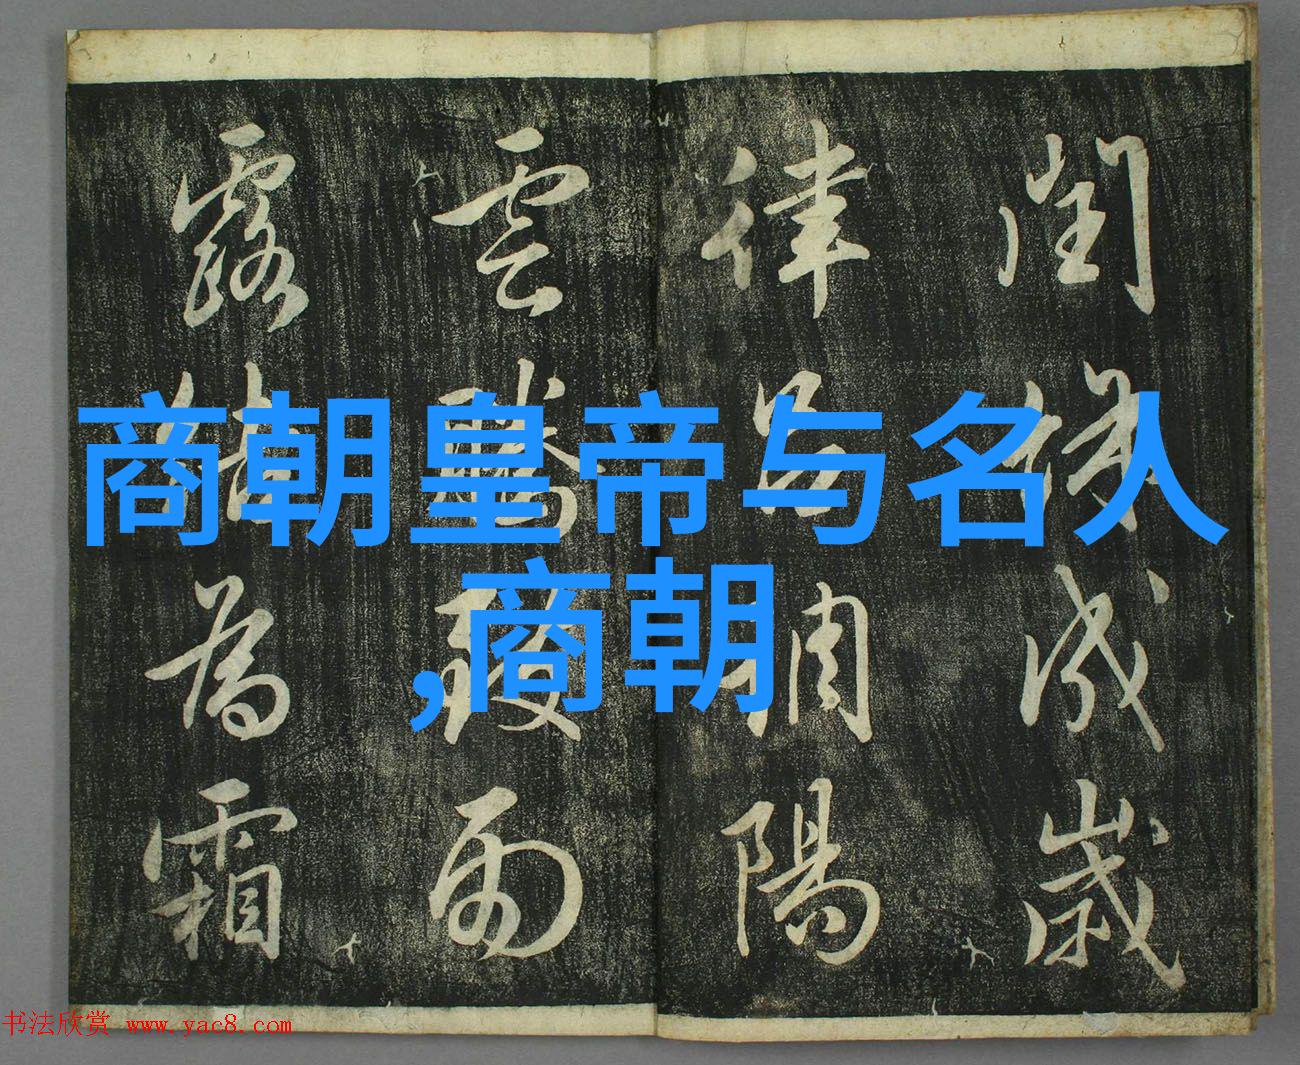 閏餘成歲
律呂調陽
雲騰致雨
露結為霜
商朝皇帝与名人
,商朝
书法欣赏 www.yac8.com